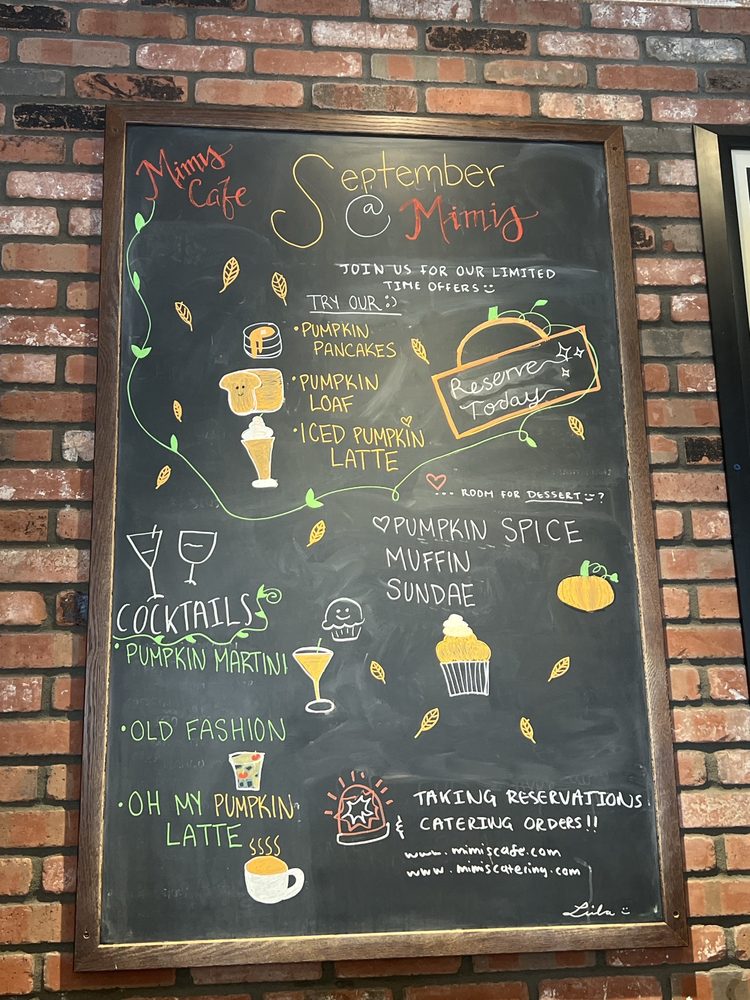 Mimis
Cafe
September
@ Mimis
JOIN US FOR OUR LIMITED
TIME OFFERS
TRY OUR :)
• PUMPKIN
PANCAKES
• PUMPKIN
LOAF
• ICED PUMPKIN
LATTE
Reserve
Today
... ROOM FOR DESSERT ?
PUMPKIN SPICE
MUFFIN
SUNDAE
COCKTAILS
• PUMPKIN MARTINI
• OLD FASHION
• OH MY PUMPKIN
LATTE
TAKING RESERVATIONS
& CATERING ORDERS!!
www.mimiscafe.com
www.mimiscatering.com